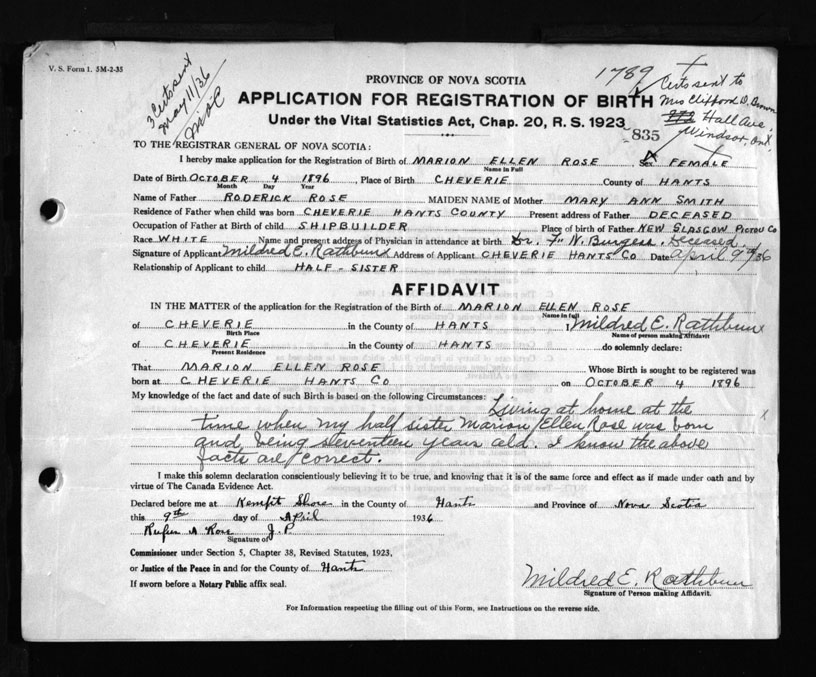 V. S. Form 1. 5M-2-35
3 Certs sent
May 11/36
PROVINCE OF NOVA SCOTIA
1789
APPLICATION FOR REGISTRATION OF BIRTH
Under the Vital Statistics Act, Chap. 20, R. S. 1923
Certs sent to
Mrs Clifford D. Brown
Hall Ave.
Windsor, Ont.
835
TO THE REGISTRAR GENERAL OF NOVA SCOTIA:
I hereby make application for the Registration of Birth of MARION ELLEN ROSE Sex FEMALE
Name in Full
Date of Birth OCTOBER 4 1896 Place of Birth CHEVERIE County of HANTS
Month Day Year
Name of Father RODERICK ROSE MAIDEN NAME of Mother MARY ANN SMITH
Residence of Father when child was born CHEVERIE HANTS COUNTY Present address of Father DECEASED
Occupation of Father at Birth of child SHIPBUILDER Place of birth of Father NEW GLASGOW PICTOU CO
Race WHITE Name and present address of Physician in attendance at birth Dr. F. N. Burgess, Deceased
Signature of Applicant Mildred E. Rathbun Address of Applicant CHEVERIE HANTS CO Date April 9th/36
Relationship of Applicant to child HALF-SISTER
AFFIDAVIT
IN THE MATTER of the application for the Registration of the Birth of MARION ELLEN ROSE
Name in full
of CHEVERIE in the County of HANTS I, Mildred E. Rathbun
Birth Place Name of person making Affidavit
of CHEVERIE in the County of HANTS do solemnly declare:
Present Residence
That MARION ELLEN ROSE Whose Birth is sought to be registered was
born at CHEVERIE HANTS CO on OCTOBER 4 1896
My knowledge of the fact and date of such Birth is based on the following Circumstances: Living at home at the
time when my half sister Marion Ellen Rose was born
and being seventeen years old. I know the above
facts are correct.
I make this solemn declaration conscientiously believing it to be true, and knowing that it is of the same force and effect as if made under oath and by
virtue of The Canada Evidence Act.
Declared before me at Kempt Shore in the County of Hants and Province of Nova Scotia
this 9th day of April 1936
Rufus A Ross J. P.
Signature of
Commissioner under Section 5, Chapter 38, Revised Statutes, 1923,
or Justice of the Peace in and for the County of Hants
If sworn before a Notary Public affix seal.
Mildred E. Rathbun
Signature of Person making Affidavit.
For Information respecting the filling out of this Form, see Instructions on the reverse side.